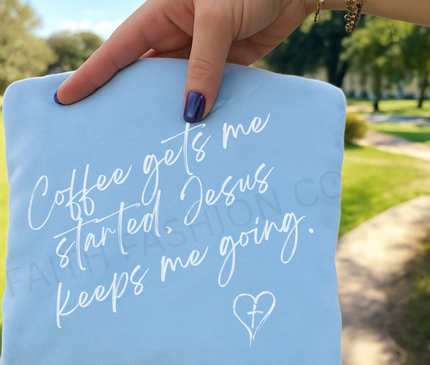 Coffee gets me
started, Jesus
keeps me going.
FAITH FASHION CO